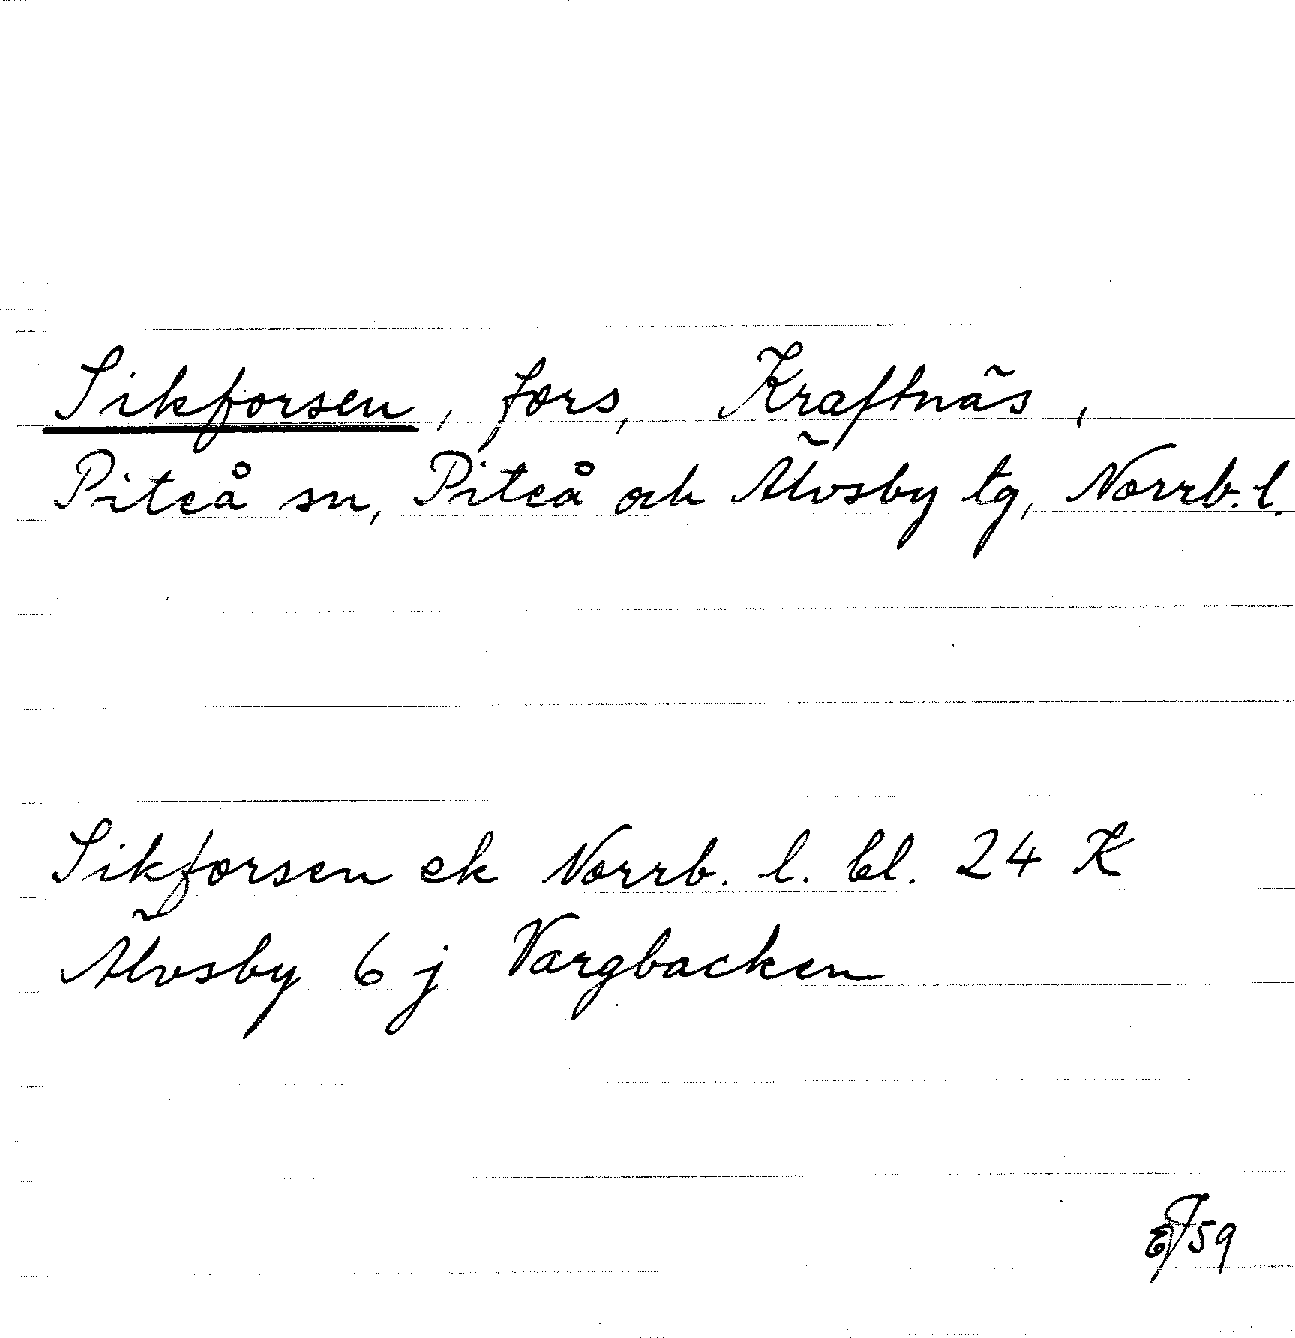 Sikforsen, fors, Kraftnäs,
Piteå sn, Piteå och Älvsby tg, Norrb. l.
Sikforsen ek Norrb. l. bl. 24 K
Älvsby 6 j Vargbacken
59